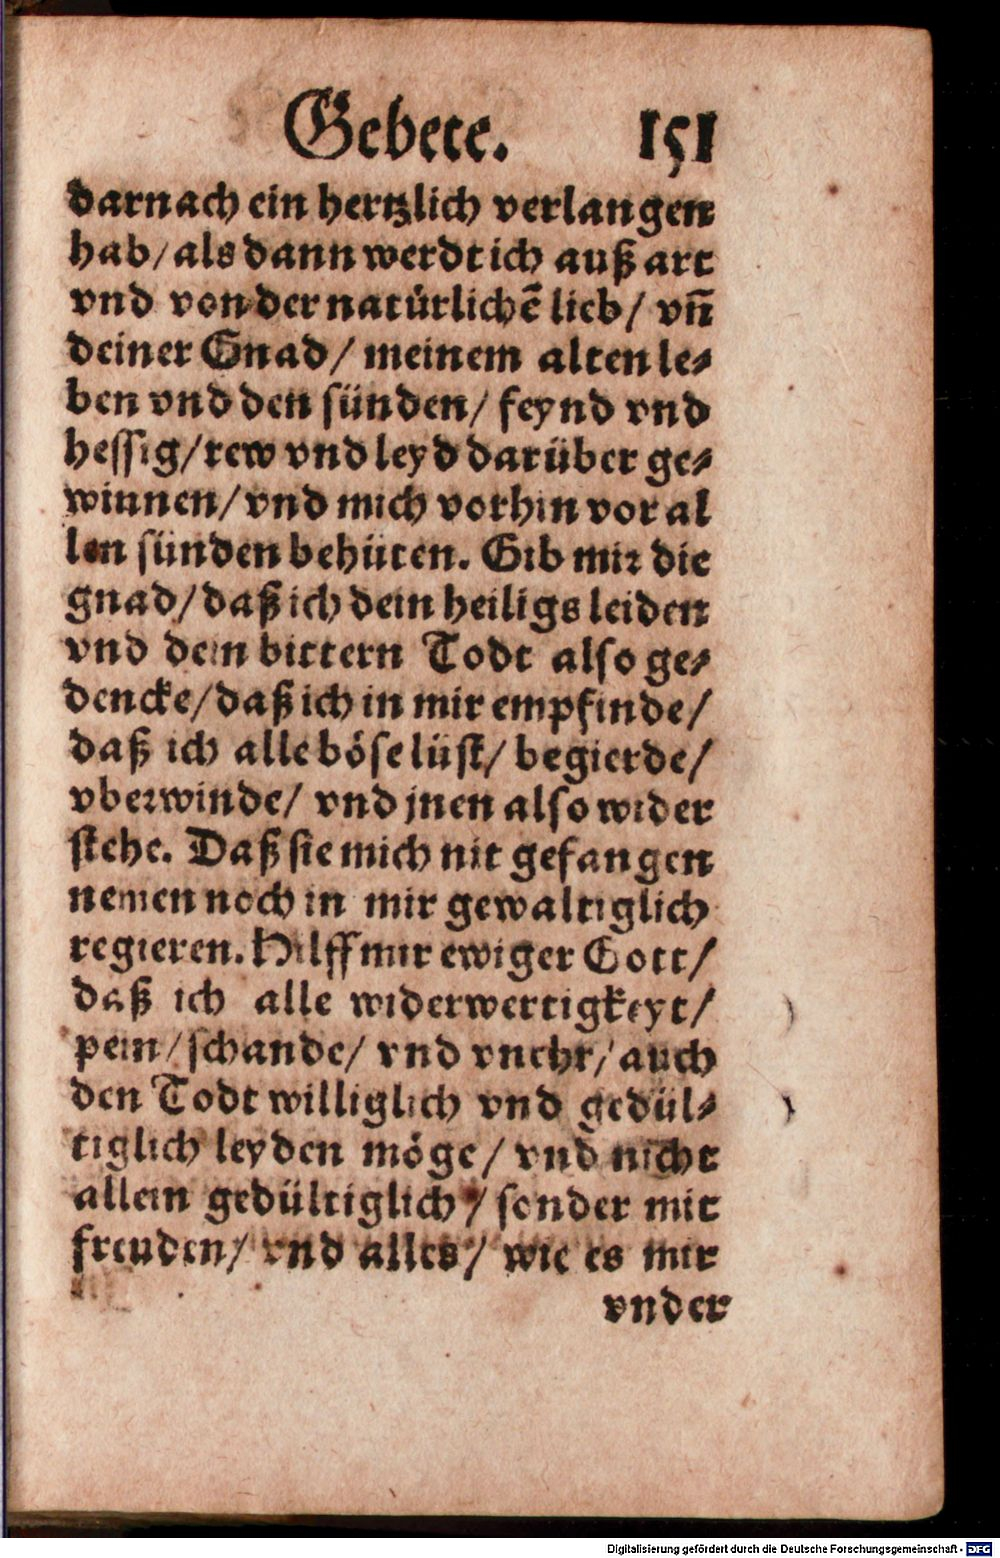 Gebete. 151
darnach ein hertzlich verlangen
hab/als dann werdt ich auß art
vnd von der natürlichẽ lieb/ vñ
deiner Gnad/ meinem alten le⸗
ben vnd den sünden/ feynd vnd
hessig/rew vnd leyd darüber ge⸗
winnen/vnd mich vorhin vor al
len sünden behüten. Gib mir die
gnad/daß ich dein heiligs leiden
vnd dein bittern Todt also ge⸗
dencke/daß ich in mir empfinde/
daß ich alle böse lüst/ begierde/
vberwinde/ vnd jnen also wider
stehe. Daß sie mich nit gefangen
nemen noch in mir gewaltiglich
regieren. Hilff mir ewiger Gott/
daß ich alle widerwertigkeyt/
pein/schande/ vnd vnehr/ auch
den Todt williglich vnd gedül⸗
tiglich leyden möge/ vnd nicht
allein gedültiglich/ sonder mit
freuden/ vnd alles/ wie es mir
vnder
Digitalisierung gefördert durch die Deutsche Forschungsgemeinschaft - DFG